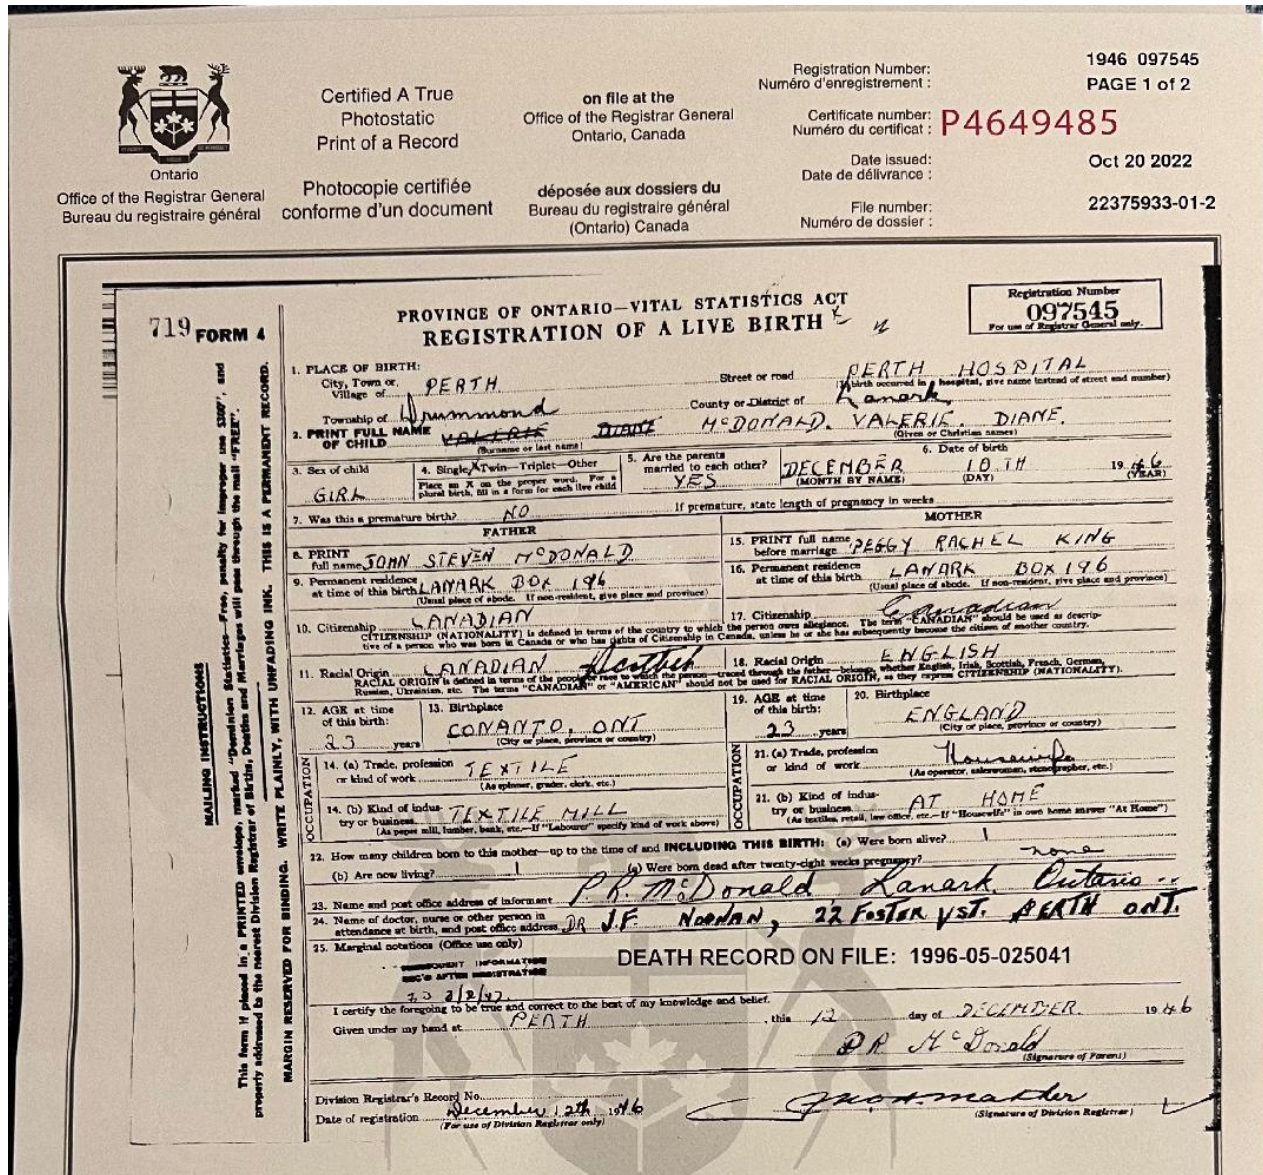 Ontario
Office of the Registrar General
Bureau du registraire général
Certified A True
Photostatic
Print of a Record
Photocopie certifiée
conforme d'un document
on file at the
Office of the Registrar General
Ontario, Canada
déposée aux dossiers du
Bureau du registraire général
(Ontario) Canada
Registration Number:
Numéro d'enregistrement :
1946 097545
PAGE 1 of 2
Certificate number:
Numéro du certificat :
P4649485
Date issued:
Date de délivrance :
Oct 20 2022
File number:
Numéro de dossier :
22375933-01-2
719 FORM 4
PROVINCE OF ONTARIO—VITAL STATISTICS ACT
REGISTRATION OF A LIVE BIRTH
Registration Number
097545
For use of Registrar General only.
MAILING INSTRUCTIONS
This form if placed in a PRINTED envelope, marked "Dominion Statistics—Free, penalty for improper use $300", and
properly addressed to the nearest Division Registrar of Births, Deaths and Marriages will pass through the mail "FREE".
MARGIN RESERVED FOR BINDING. WRITE PLAINLY, WITH UNFADING INK. THIS IS A PERMANENT RECORD.
1. PLACE OF BIRTH:
City, Town or Village of PERTH Street or road PERTH HOSPITAL
(If birth occurred in hospital, give name instead of street and number)
Township of Drummond County or District of Lanark
2. PRINT FULL NAME OF CHILD VALERIE DIANE McDONALD. VALERIE. DIANE.
(Surname or last name) (Given or Christian names)
3. Sex of child
GIRL
4. Single X Twin—Triplet—Other
Place an X on the proper word. For a
plural birth, fill in a form for each live child
5. Are the parents
married to each other?
YES
6. Date of birth
DECEMBER 10TH 1946
(MONTH BY NAME) (DAY) (YEAR)
7. Was this a premature birth? NO If premature, state length of pregnancy in weeks
FATHER
8. PRINT full name JOHN STEVEN McDONALD
9. Permanent residence at time of this birth LANARK BOX 196
(Usual place of abode. If non-resident, give place and province)
10. Citizenship CANADIAN
MOTHER
15. PRINT full name before marriage PEGGY RACHEL KING
16. Permanent residence at time of this birth LANARK BOX 196
(Usual place of abode. If non-resident, give place and province)
17. Citizenship Canadian
CITIZENSHIP (NATIONALITY) is defined in terms of the country to which the person owes allegiance. The term "CANADIAN" should be used as descrip-
tive of a person who was born in Canada or who has rights of Citizenship in Canada, unless he or she has subsequently become the citizen of another country.
11. Racial Origin CANADIAN Scottish 18. Racial Origin ENGLISH
RACIAL ORIGIN is defined in terms of the people or race to which the person—traced through the father—belongs, whether English, Irish, Scottish, French, German,
Russian, Ukrainian, etc. The terms "CANADIAN" or "AMERICAN" should not be used for RACIAL ORIGIN, as they express CITIZENSHIP (NATIONALITY).
12. AGE at time
of this birth:
23 years
13. Birthplace
ONT
(City or place, province or country)
19. AGE at time
of this birth:
23 years
20. Birthplace
ENGLAND
(City or place, province or country)
OCCUPATION
14. (a) Trade, profession
or kind of work TEXTILE
(As spinner, grader, clerk, etc.)
14. (b) Kind of indus-
try or business TEXTILE MILL
(As paper mill, lumber, bank, etc.—If "Labourer" specify kind of work above)
OCCUPATION
21. (a) Trade, profession
or kind of work Housewife
(As operator, saleswoman, stenographer, etc.)
21. (b) Kind of indus-
try or business AT HOME
(As textiles, retail, law office, etc.—If "Housewife" in own home answer "At Home")
22. How many children born to this mother—up to the time of and INCLUDING THIS BIRTH: (a) Were born alive? 1
(b) Are now living? 1 (c) Were born dead after twenty-eight weeks pregnancy? none
23. Name and post office address of informant P.R. McDonald Lanark Ontario
24. Name of doctor, nurse or other person in
attendance at birth, and post office address DR J.F. NOONAN, 22 FOSTER ST. PERTH ONT.
25. Marginal notations (Office use only)
INFORMATION
REC'D AFTER REGISTRATION
DEATH RECORD ON FILE: 1996-05-025041
I certify the foregoing to be true and correct to the best of my knowledge and belief.
Given under my hand at PERTH, this 12 day of DECEMBER. 1946
P R McDonald
(Signature of Parent)
Division Registrar's Record No.
Date of registration December 12th 1946
(For use of Division Registrar only)
(Signature of Division Registrar)